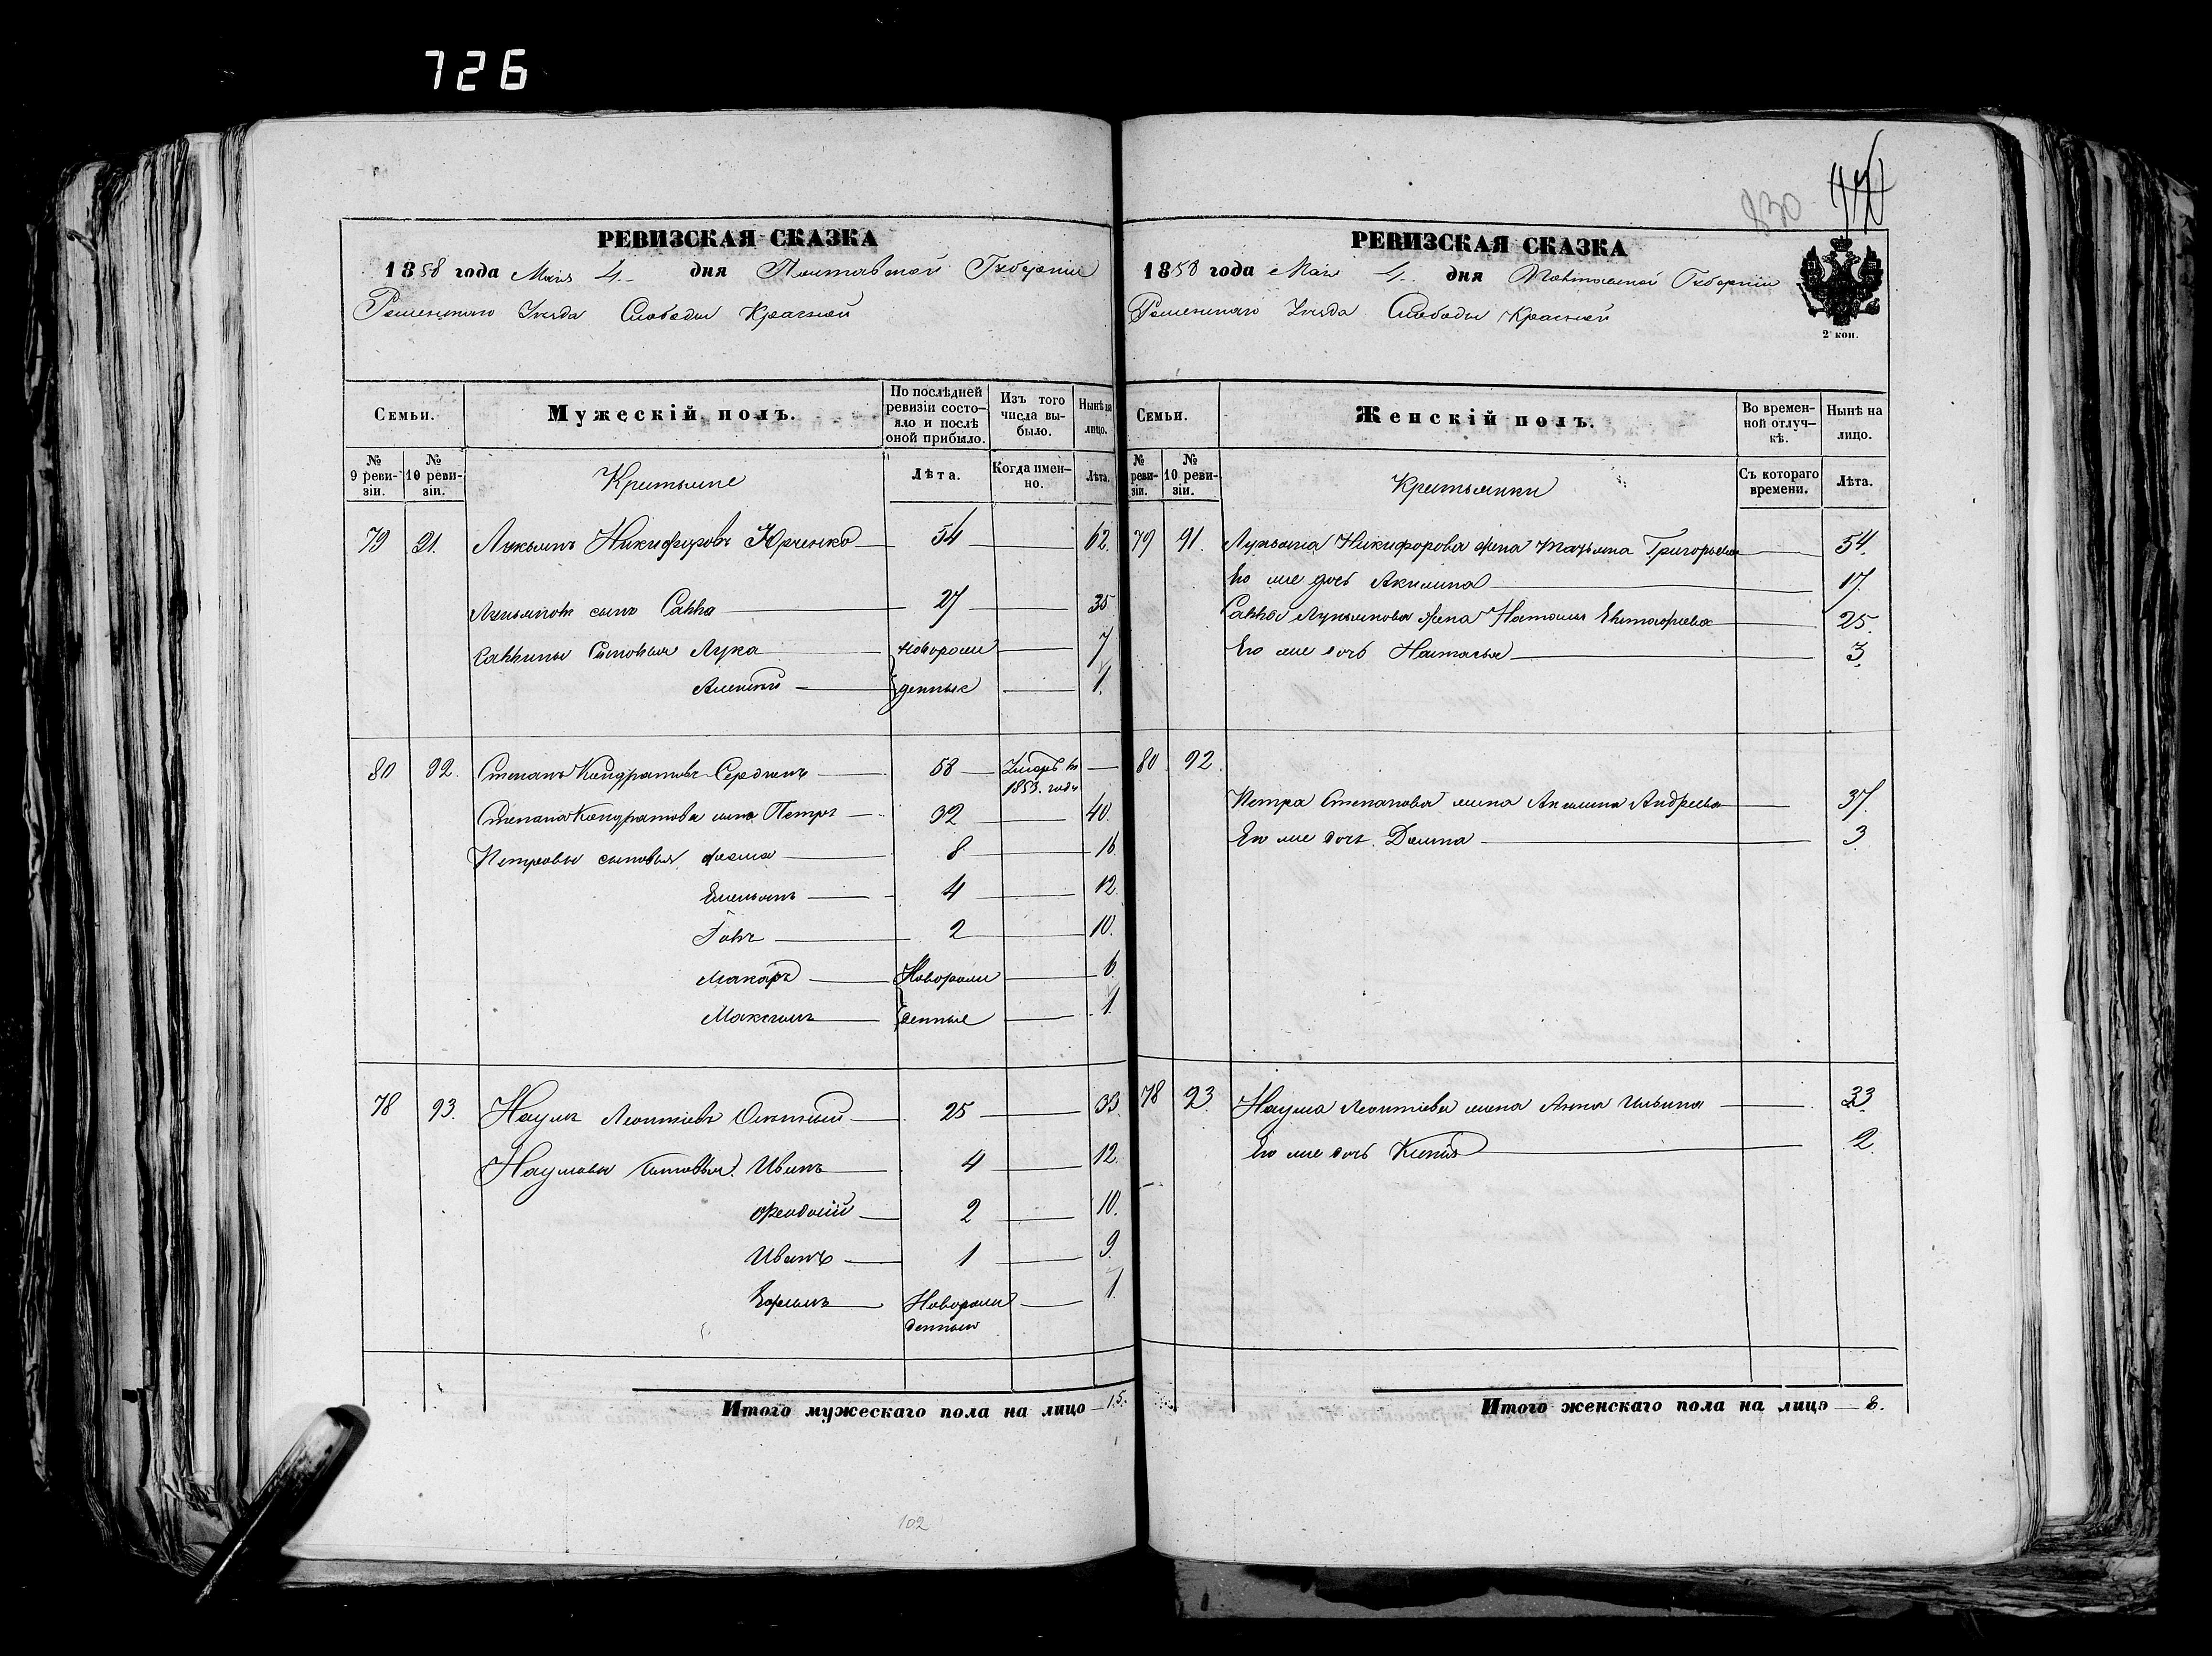 726
830
РЕВИЗСКАЯ СКАЗКА
1858 года Мая 4 дня Полтавской Губернии
Роменскаго Уезда Слободы Красной
Семьи.
Мужескій полъ.
По послѣдней ревизіи состояло и послѣ оной прибыло.
Изъ того числа выбыло.
Нынѣ на лицо.
№ 9 ревизіи.
№ 10 ревизіи.
Крестьяне
Лѣта.
Когда именно.
Лѣта.
79 91. Лукьянъ Никифоровъ Юрченко 54 62.
Лукьяновъ сынъ Савва 27 35
Саввины сыновья Лука новорож 7
Алексѣй денные 1.
80 92. Степанъ Кондратовъ 58 Умеръ въ
1853. году
Степана Кондратова сынъ Петръ 32 40.
Петровы сыновья Фома 8 16
Емельянъ 4 12.
Іовъ 2 10.
Макаръ Новорож 6
Максимъ денные 1
78 93. Наумъ Леонтіевъ 25 33.
Наумовы сыновья Иванъ 4 12.
Феодосій 2 10.
Иванъ 1 9.
Ефимъ Новорож 1
денный
Итого мужескаго пола на лицо 15.
102
РЕВИЗСКАЯ СКАЗКА
1858 года Мая 4 дня Полтавской Губернии
Роменскаго Уезда Слободы Красной
2 коп.
Семьи.
Женскій полъ.
Во временной отлучкѣ.
Нынѣ на лицо.
№ ревизіи.
№ 10 ревизіи.
Крестьянки
Съ котораго времени.
Лѣта.
79 91. Лукьяна Никифорова жена Татьяна Григорьева 54.
Его же дочь Акилина 17.
Саввы Лукьянова жена Наталья 25.
Его же дочь Наталья 3.
80 92.
Петра Степанова жена Акилина Андреева 37.
Его же дочь Домна 3.
78 93. Наума Леонтіева жена Анна Ильина 33.
Его же дочь 2.
Итого женскаго пола на лицо 8.